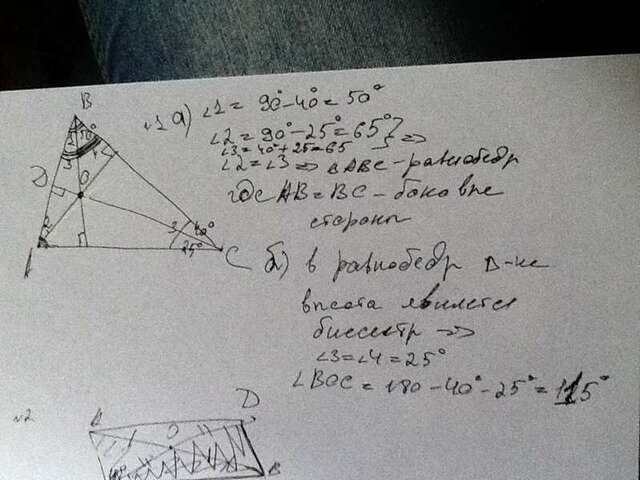 B
N1 а) ∠1 = 90° - 40° = 50°
∠2 = 90° - 25° = 65° } =>
∠3 = 40° + 25 = 65
∠2 = ∠3 => △ABC - равнобедр
где AB = BC - боковые
стороны
O
3 40°
25°
C
б) в равнобедр △-ке
высота является
биссектр =>
∠3 = ∠4 = 25°
∠BOC = 180 - 40° - 25° = 115°
N2
A
O
D
B